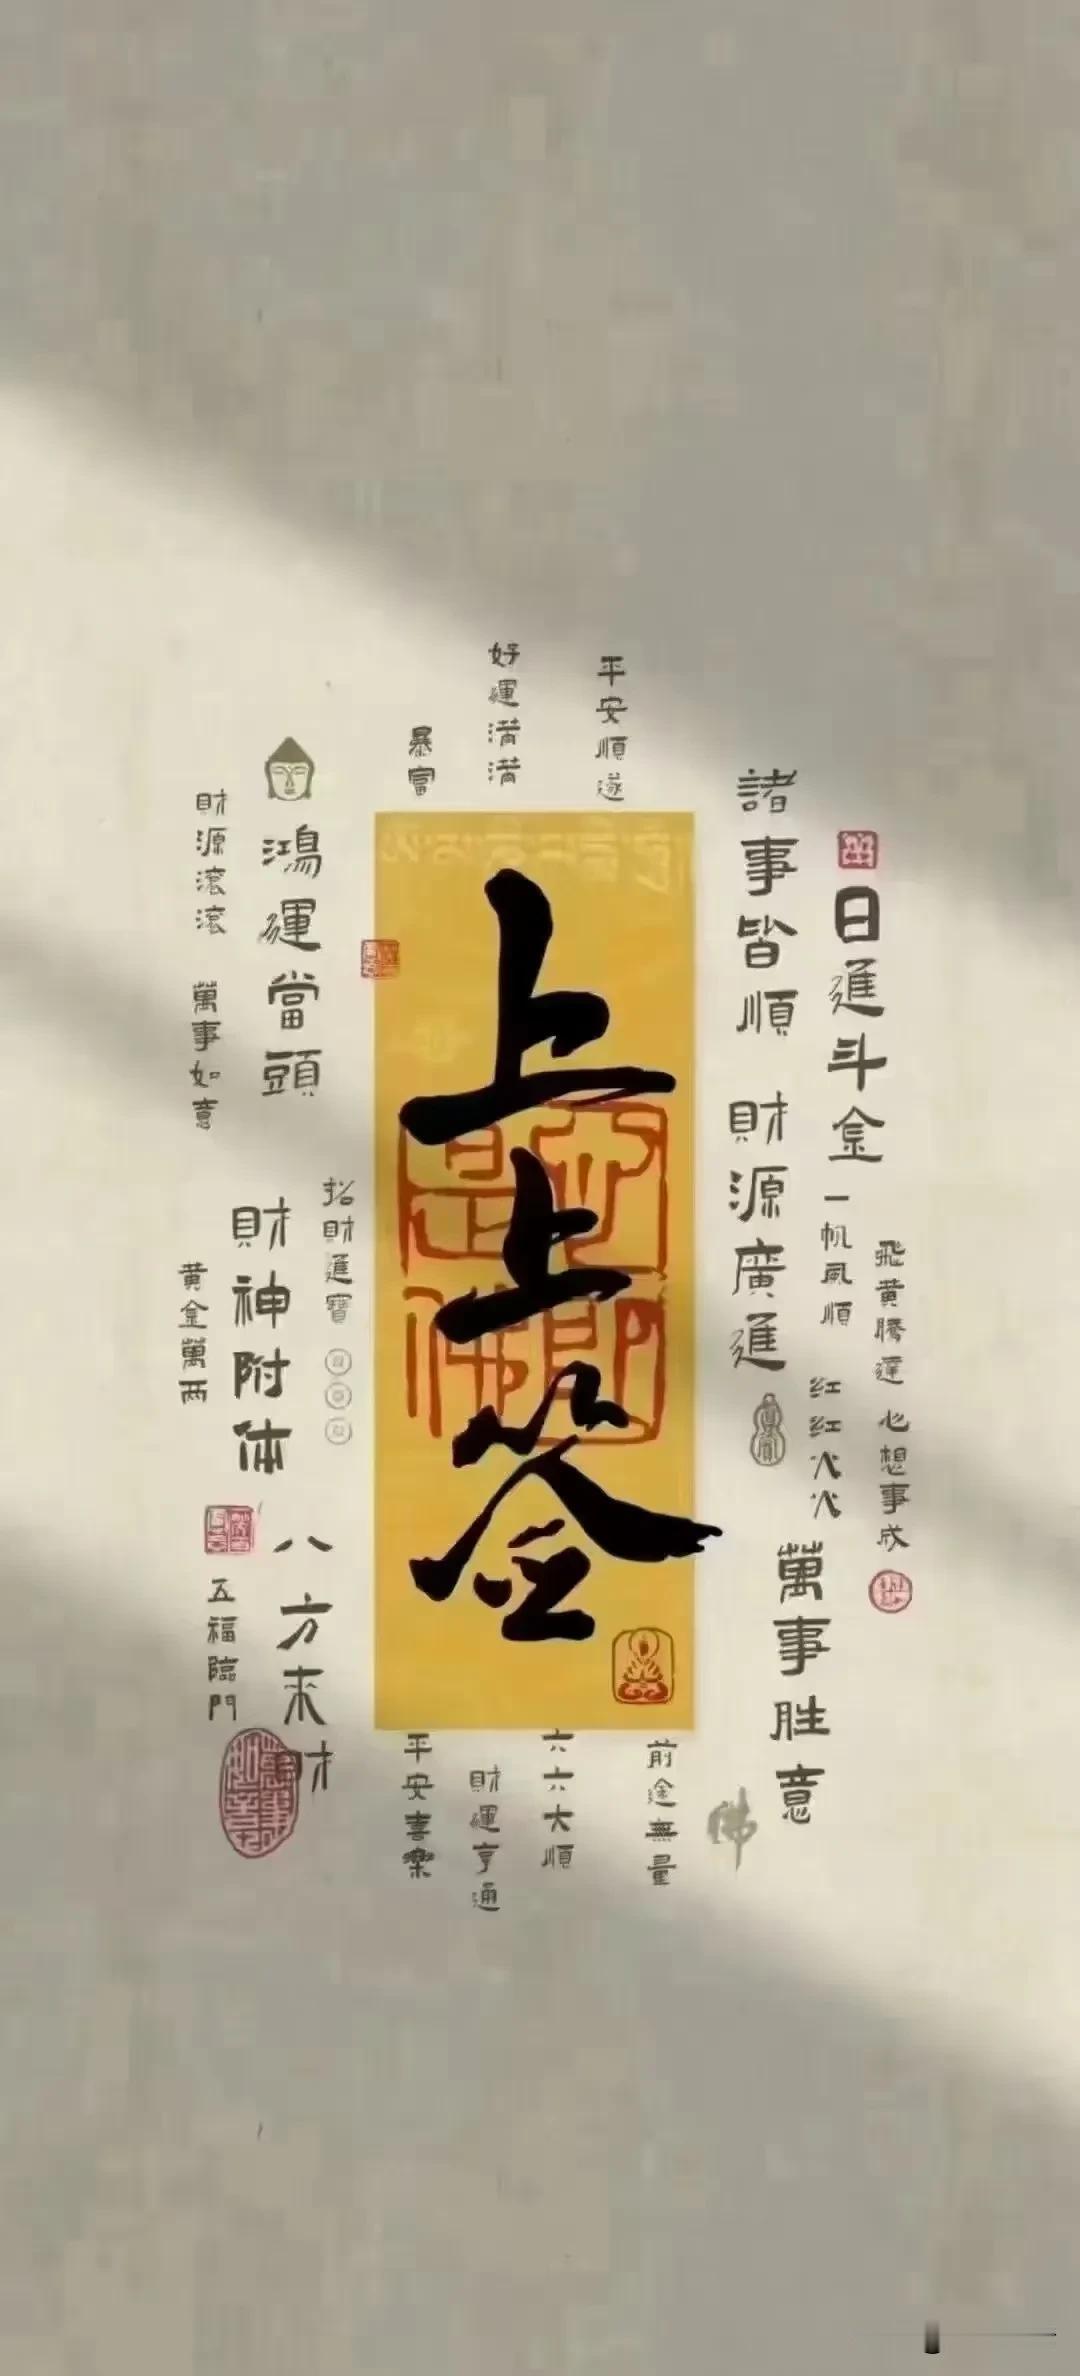 平安順遂
好運满满
暴富
日進斗金
一帆風順
諸事皆順
財源廣進
飛黄騰達
心想事成
红红火火
萬事胜意
上上签
心即是佛
鴻運當頭
財源滾滾
萬事如意
招財進寶
財神附体
黄金萬两
八方来财
五福臨門
前途無量
六六大順
財運亨通
平安喜樂
佛